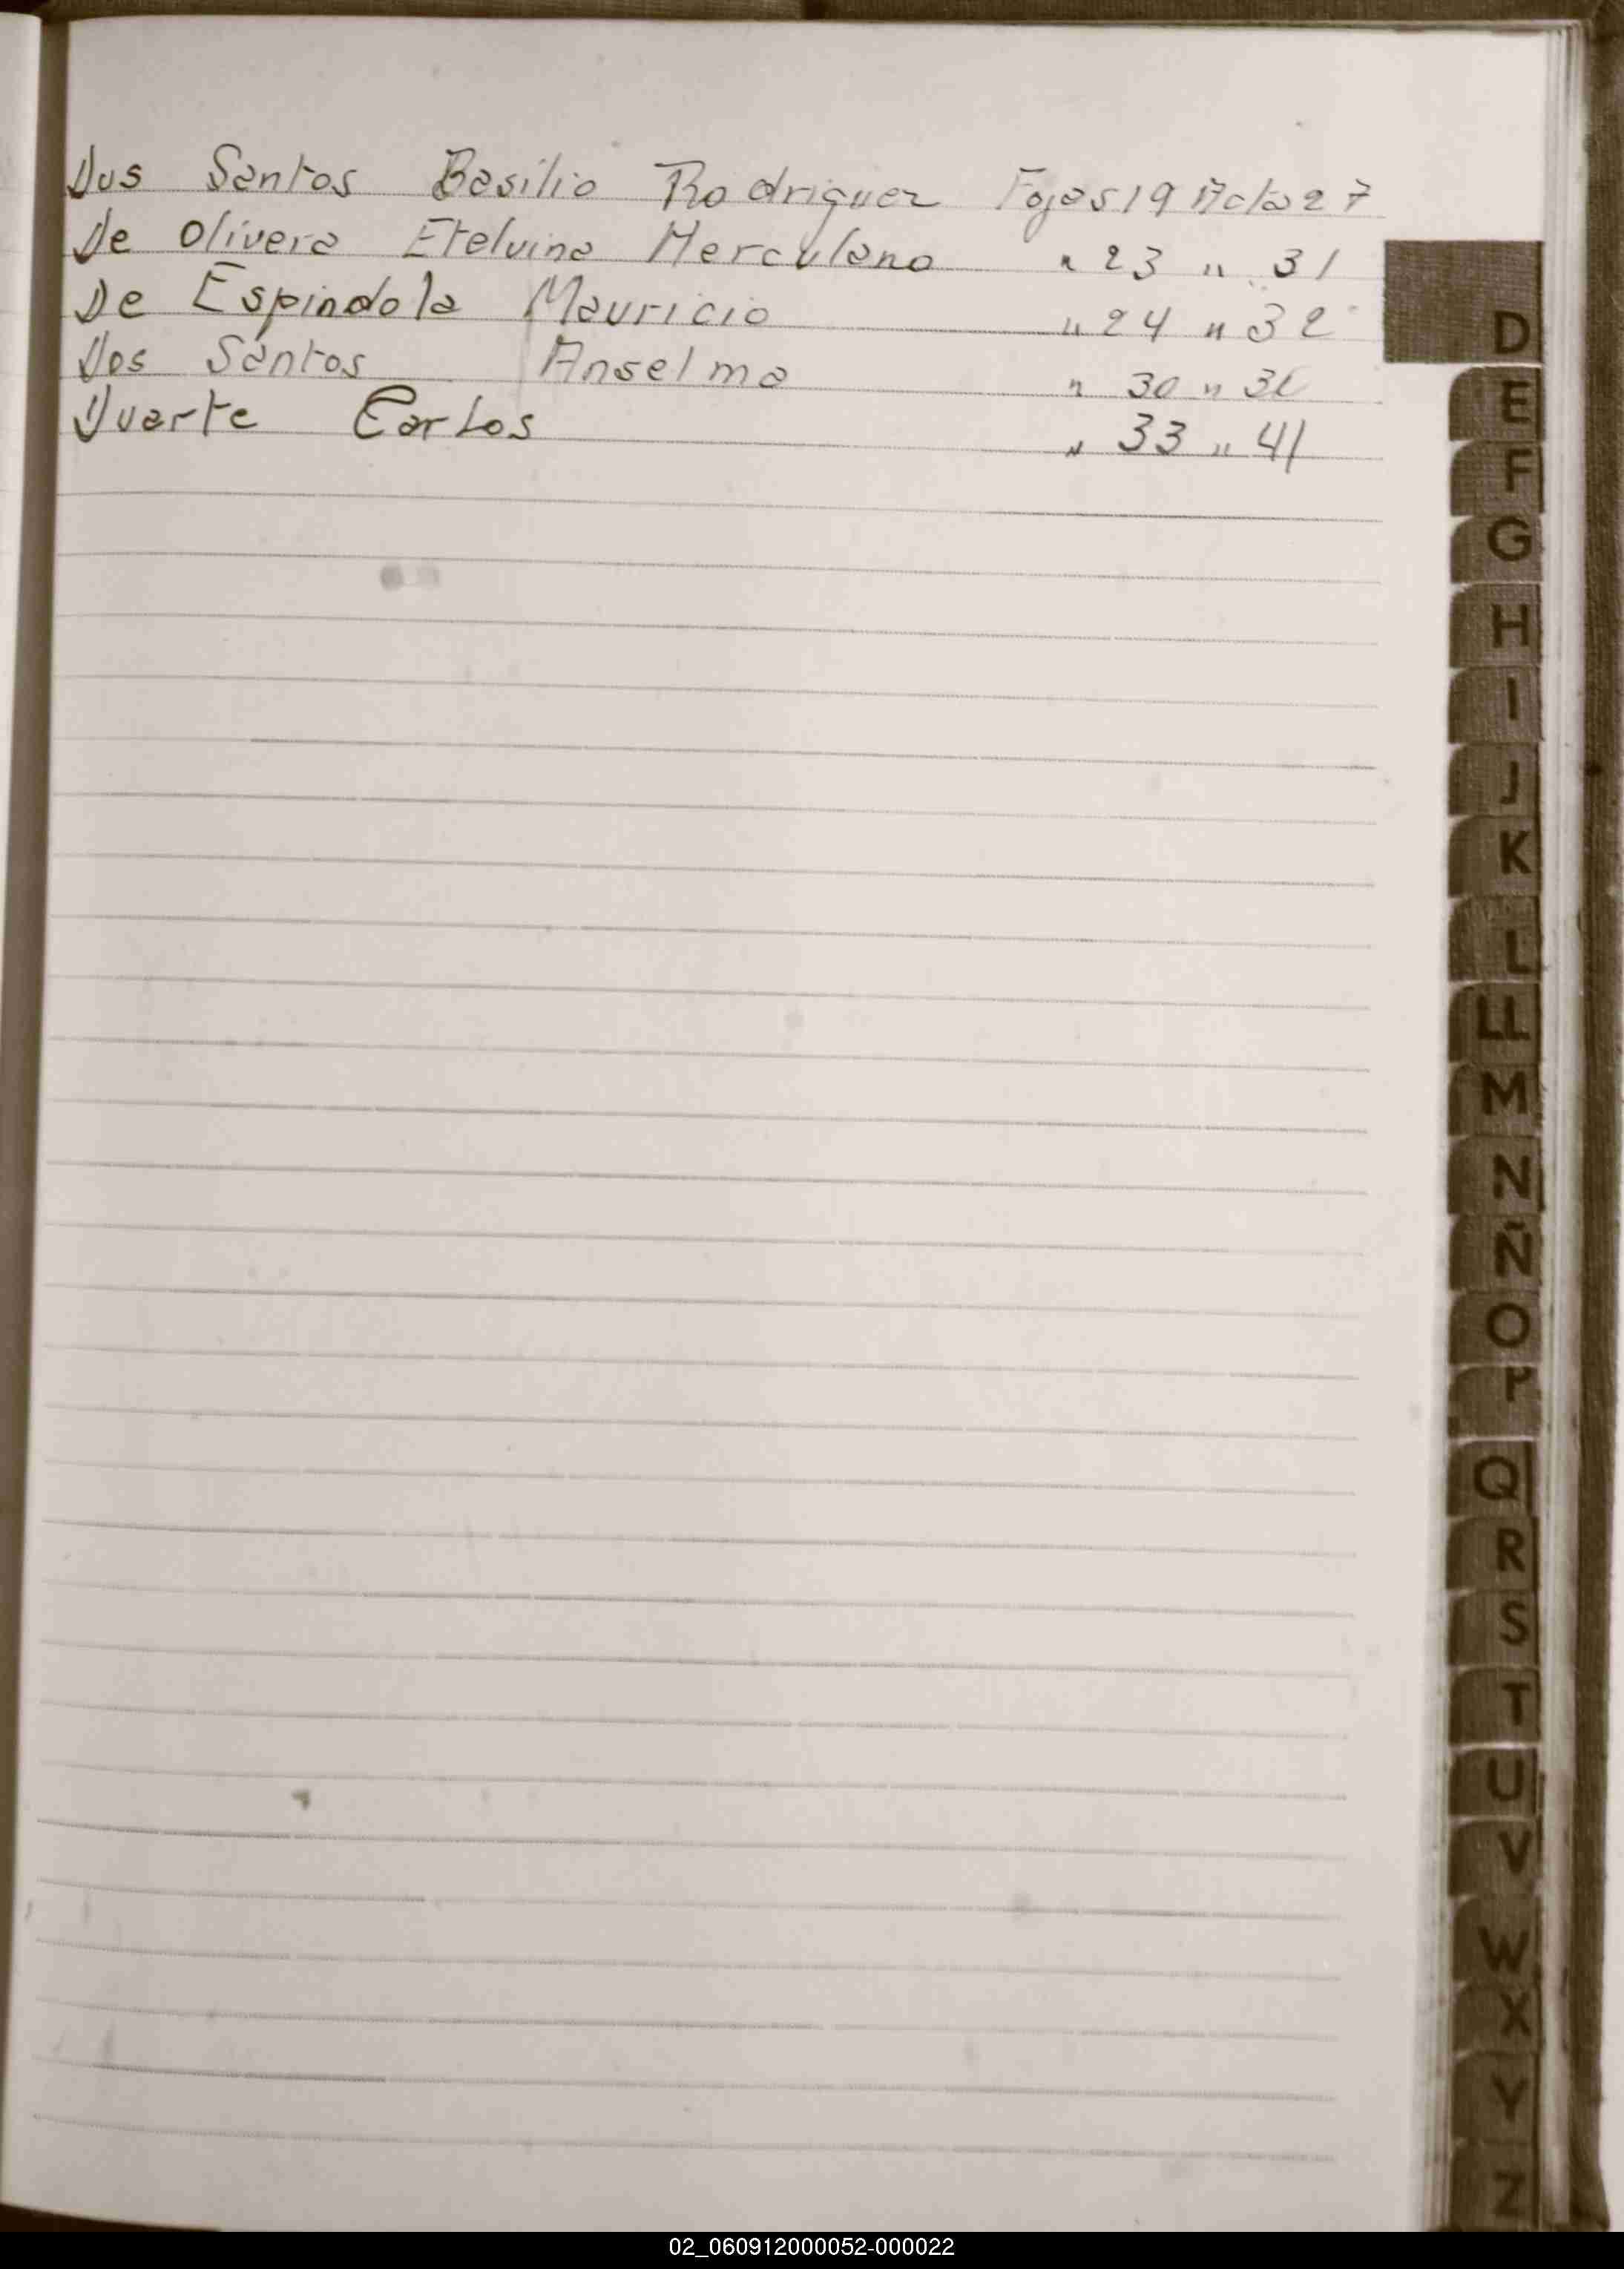 Dos Santos Basilio Rodriguez Fojas 19 Acta 27
De Olivera Etelvina Herculano " 23 " 31
De Espindola Mauricio " 24 " 32
Dos Santos Anselma " 30 "
Duarte Carlos " 33 " 41
D
E
F
G
H
I
J
K
L
LL
M
N
Ñ
O
P
Q
R
S
T
U
V
W
X
Y
Z
02_060912000052-000022